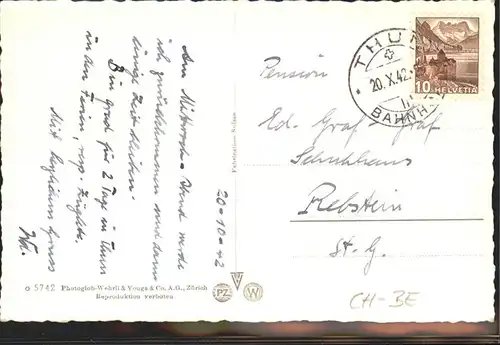 20-10-42
Am Mittwoch-Abend werde
ich zurückkommen und dann
einige Zeit bleiben.
Bin grad für 2 Tage in Thun
in den Ferien, resp.
Mit herzlichem Gruss
Pension
Ed. Graf-Graf
Schulhaus
Rebstein
St. G.
THUN
20.X.42.
BAHNH
10 HELVETIA
Fabrication Suisse
5742 Photoglob-Wehrli & Vouga & Co. A.G., Zürich
Reproduktion verboten
PZ
W
CH-BE